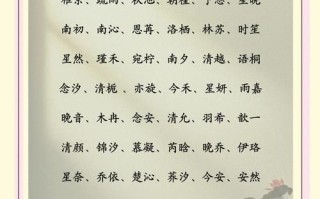 南初、南沁、恩苒、洛栖、林苏、时笙
星然、瑾禾、宛柠、南夕、清越、语桐
念汐、清栀、亦旋、今禾、星妍、雨嘉
晚音、木冉、念安、清允、羽希、歆一
清颜、锦汐、慕凝、芮晗、晚乔、伊珞
星奈、乔依、楚沁、荞汐、今安、安然